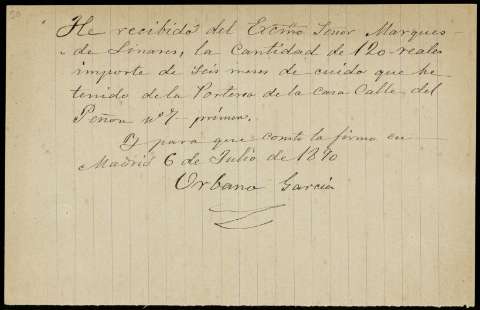 50
He recibido del Excmo Señor Marques
de Linares, la Cantidad de 120 reales
importe de Seis meses de cuido que he
tenido de la Porteria de la Casa Calle del
Peñon nº 7 primera.
Y para que conste lo firmo en
Madrid 6 de Julio de 1890
Urbano Garcia